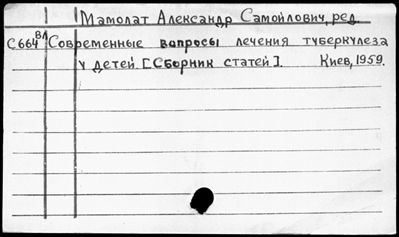 Мамолат Александр Самойлович, ред.
С664 ВЛ Современные вопросы лечения туберкулеза
у детей [Сборник статей]. Киев, 1959.